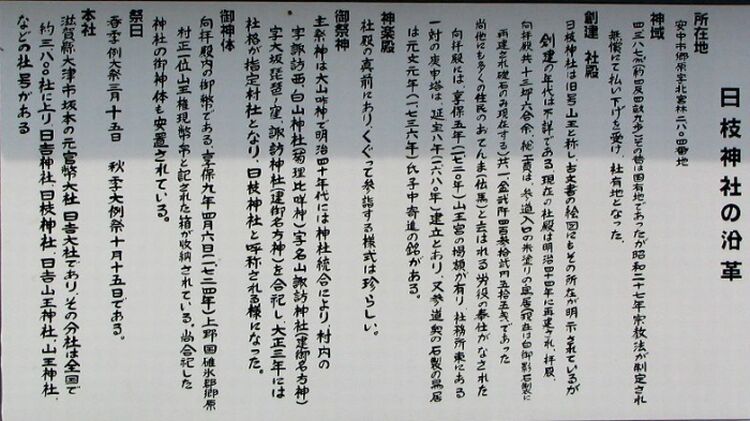 日枝神社の沿革
所在地
安中市郷原字北宮林二八〇四番地
神域
四三八七㎡(約四反四畝九歩)その昔は国有地であったが昭和二十七年宗教法が制定され
無償にて払い下げを受け、社有地となった。
創建 社殿
日枝神社は旧号山王と称し、古文書の絵図にもその所在が明示されているが
創建の年代は不詳である。現在の社殿は明治四十四年に再建され、拝殿、
向拝殿共十三坪六合余、総工費は、参道入口の朱塗りの鳥居(現在は白御影石製に
再建され礎石のみ現存する)共、金貳阡四百参拾貳円五拾五戋であった
尚他にも多くの住民のおてんま(伝馬)と云はれる労役の奉仕がなされた
向拝殿には、享保五年(一七二〇年)山王宮の掲額が有り、社務所東にある
一対の庚申塔は、延宝八年(一六八〇年)建立とあり、又参道奥の石製の鳥居
は元文元年(一七三六年)氏子中寄進の銘がある。
神楽殿
社殿の真前にあり、くぐって参詣する様式は珍らしい。
御祭神
主祭神は大山咋神で明治四十年代には神社統合により、村内の
字諏訪西、白山神社(菊理比咩神)字名山諏訪神社(建御名方神)
字大坂琵琶ノ窪、諏訪神社(建御名方神)を合祀し、大正三年には
社格が指定村社となり、日枝神社と呼称される様になった。
御神体
向拝殿内の御幣である。享保九年四月六日(一七二四年)上野国碓氷郡郷原
村正一位山王権現幣帛と記された箱が収納されている。尚合祀した
神社の御神体も安置されている。
祭日
春季例大祭三月十五日 秋季大例祭十月十五日である。
本社
滋賀縣大津市坂本の元官幣大社 日吉大社であり、その分社は全国で
約三八〇〇社により、日吉神社、日枝神社、日吉山王神社、山王神社、
などの社号がある